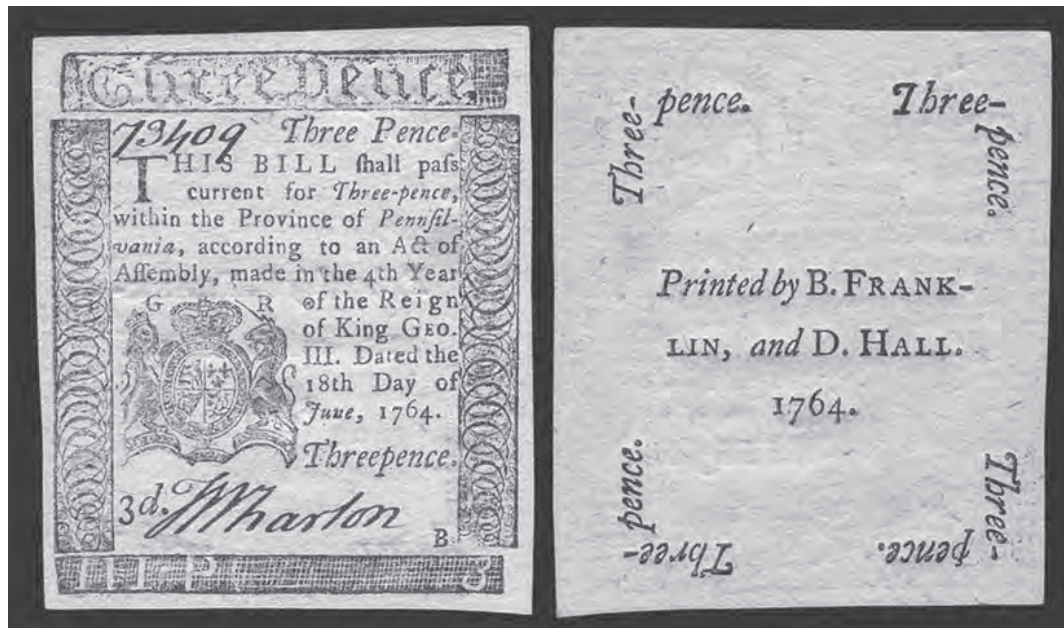 Three Pence.
73409 Three Pence.
THIS BILL ſhall paſs
current for Three-pence,
within the Province of Pennſil-
vania, according to an Act of
Aſſembly, made in the 4th Year
G R of the Reign
of King GEO.
III. Dated the
18th Day of
June, 1764.
Threepence.
3d. Wharton
B
III-P 3
Three-pence.
Three-pence.
Printed by B. FRANK-
LIN, and D. HALL.
1764.
Three-pence.
Three-pence.